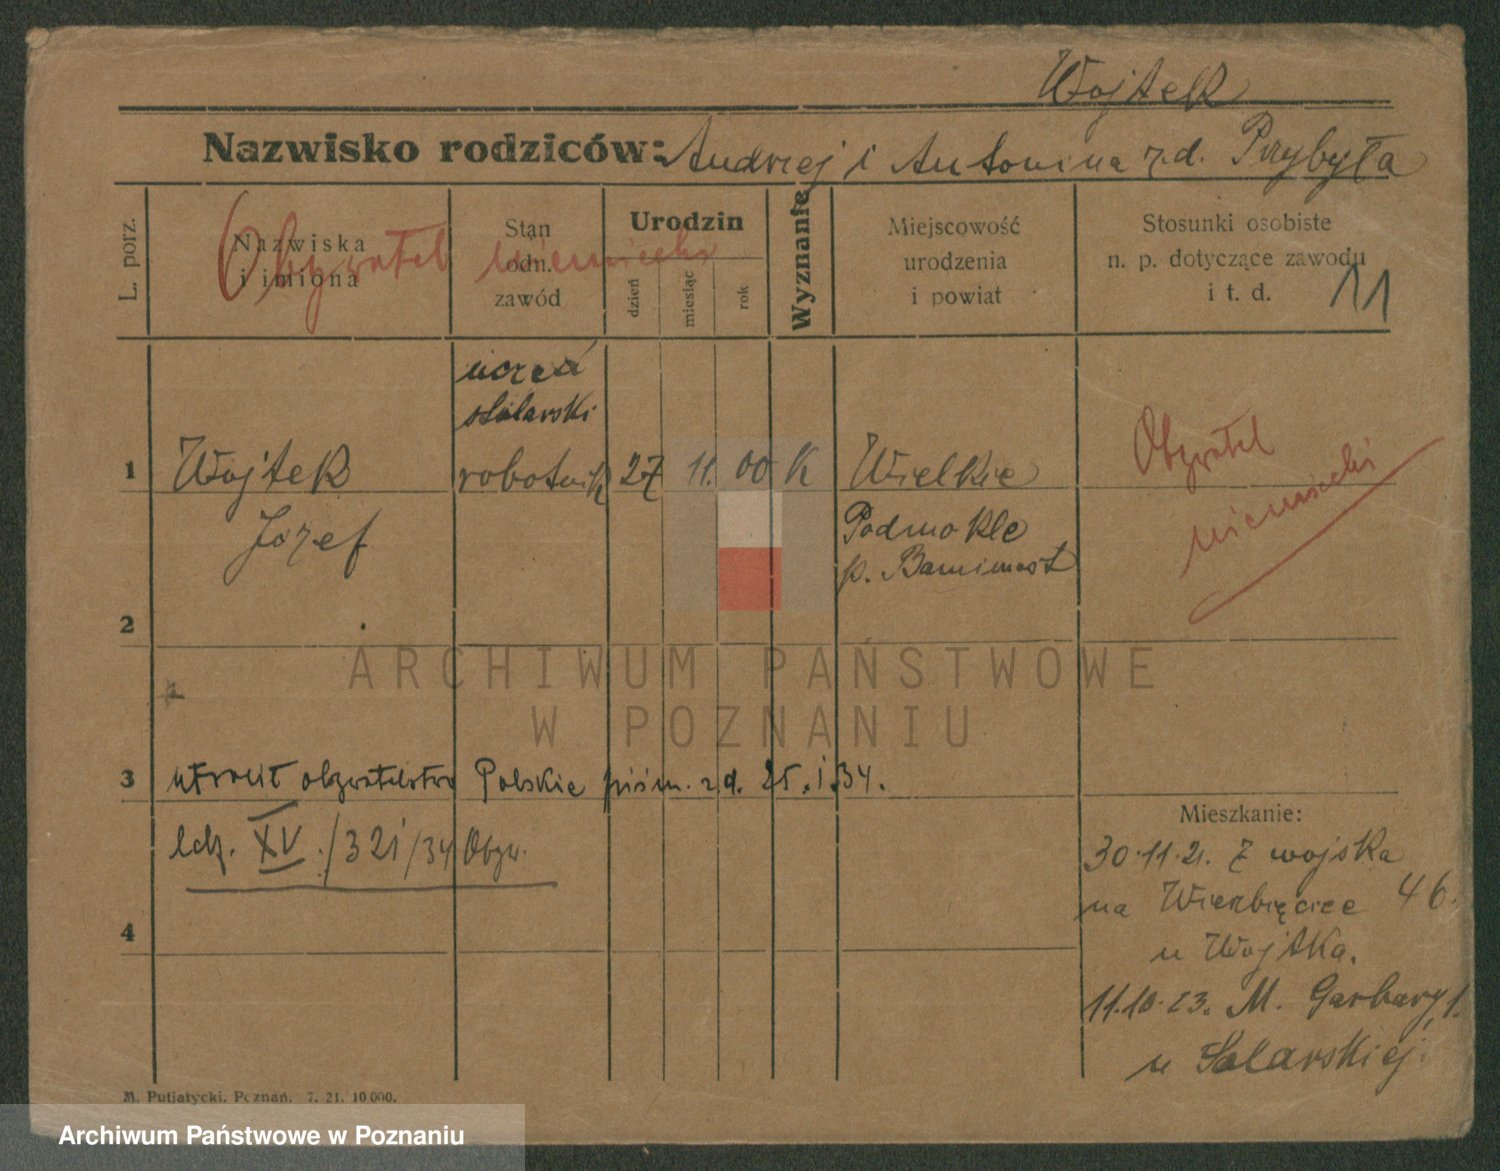 Wojtek
Nazwisko rodziców: Andrzej i Antonina z d. Przybyła
L. porz.
Nazwiska i imiona
Obywatel niemiecki
Stan odn. zawód
Urodzin
dzień
miesiąc
rok
Wyznanie
Miejscowość urodzenia i powiat
Stosunki osobiste
n. p. dotyczące zawodu
i t. d.
11
uczeń
stolarski
1 Wojtek robotnik 27 11. 00 K Wielkie
Józef
Podmokle
p. Bamimost
Obywatel
niemiecki
2
ARCHIWUM PAŃSTWOWE
W POZNANIU
3 utracił obywatelstwo Polskie piśm. z d. 25.1.34.
ldz. XV./321/34 Obyw.
4
Mieszkanie:
30.11.21. Z wojska
na Wierzbięcice 46.
u Wojtka.
11.10.23. M. Garbary 1.
u Solarskiej.
M. Putiatycki, Poznań. 7. 21. 10 000.
Archiwum Państwowe w Poznaniu